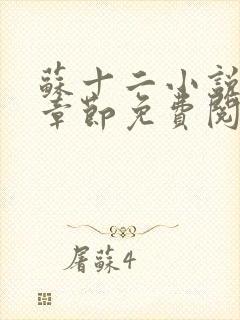 蘇十二小說
章節免費閱
屠蘇4